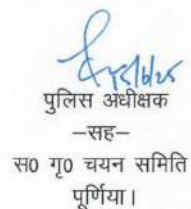 पुलिस अधीक्षक
–सह–
स0 गृ0 चयन समिति
पूर्णिया।